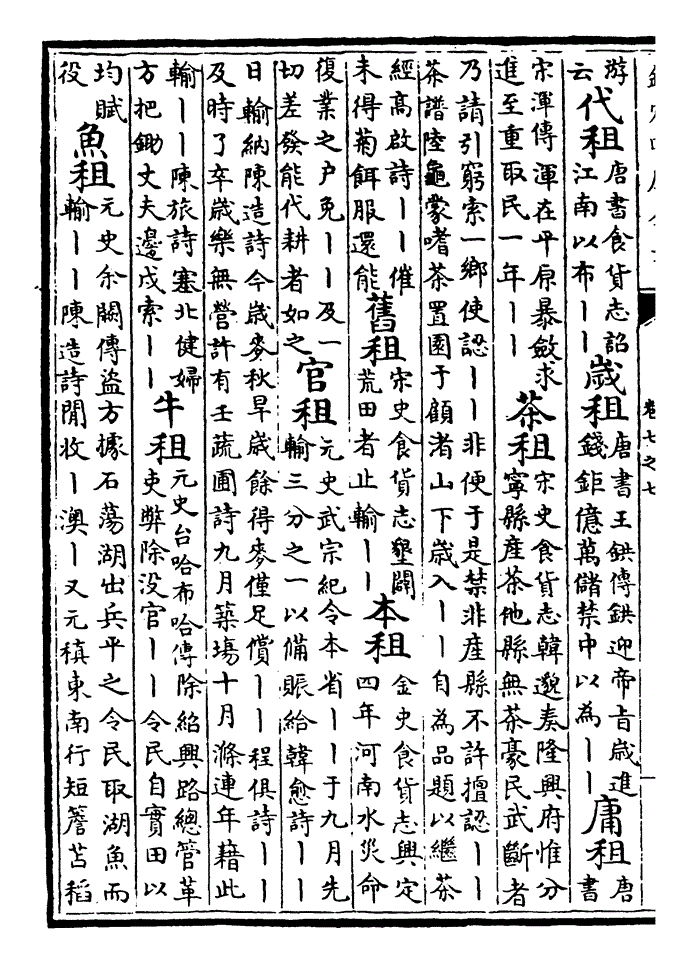 卷七之七
游
云
代租
唐書食貨志詔
江南以布丨丨
歲租
唐書王鉷傳鉷迎帝旨歲進
錢鉅億萬儲禁中以為丨丨
庸租
唐
書
宋渾傳渾在平原暴斂求
進至重取民一年丨丨
茶租
宋史食貨志韓邈奏隆興府惟分
寧縣産茶他縣無茶豪民武斷者
乃請引窮索一鄉使認丨丨非便于是禁非産縣不許擅認丨丨
茶譜陸龜蒙嗜茶置園于顧渚山下歲入丨丨自為品題以繼茶
經高啟詩丨丨催
未得菊餌服還能
舊租
宋史食貨志墾闢
荒田者止輸丨丨
本租
金史食貨志興定
四年河南水災命
復業之户免丨丨及一
切差發能代耕者如之
官租
元史武宗紀令本省丨丨于九月先
輸三分之一以備賑給韓愈詩丨丨
日輸納陳造詩今歲麥秋旱歲餘得麥僅足償丨丨程俱詩丨丨
及時了卒歲樂無營許有壬蔬圃詩九月築塲十月滌連年藉此
輸丨丨陳旅詩塞北健婦
方把鋤丈夫邊戍索丨丨
牛租
元史台哈布哈傳除紹興路總管革
吏弊除没官丨丨令民自實田以
均賦
役
魚租
元史余闕傳盜方據石蕩湖出兵平之令民取湖魚而
輸丨丨陳造詩閒收丨澳丨又元稹東南行短簷苫稻